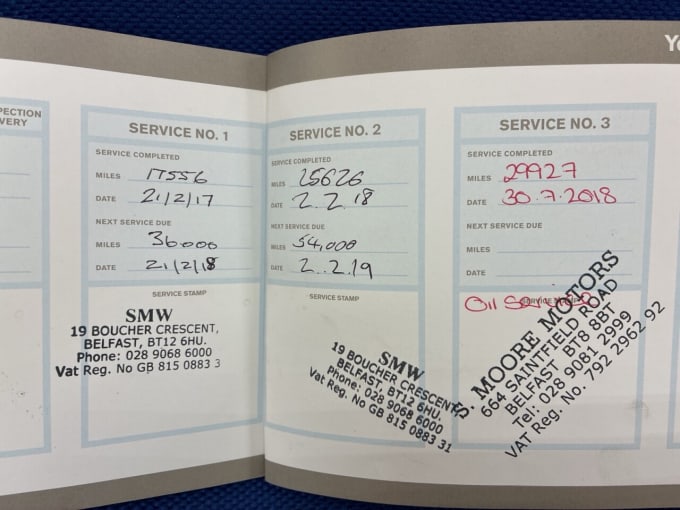 PECTION
VERY
SERVICE NO. 1
SERVICE COMPLETED
MILES 17556
DATE 21/2/17
NEXT SERVICE DUE
MILES 36000
DATE 21/2/18
SERVICE STAMP
SMW
19 BOUCHER CRESCENT,
BELFAST, BT12 6HU.
Phone: 028 9068 6000
Vat Reg. No GB 815 0883 3
SERVICE NO. 2
SERVICE COMPLETED
MILES 25626
DATE 2.2.18
NEXT SERVICE DUE
MILES 54,000
DATE 2.2.19
SERVICE STAMP
SMW
19 BOUCHER CRESCENT,
BELFAST, BT12 6HU.
Phone: 028 9068 6000
Vat Reg. No GB 815 0883 31
Yo
SERVICE NO. 3
SERVICE COMPLETED
MILES 29927
DATE 30.7.2018
NEXT SERVICE DUE
MILES
DATE
SERVICE STAMP
Oil Service
S. MOORE MOTORS
664 SAINTFIELD ROAD
BELFAST BT8 8BT
Tel: 028 9081 2999
VAT Reg. No. 792 2962 92